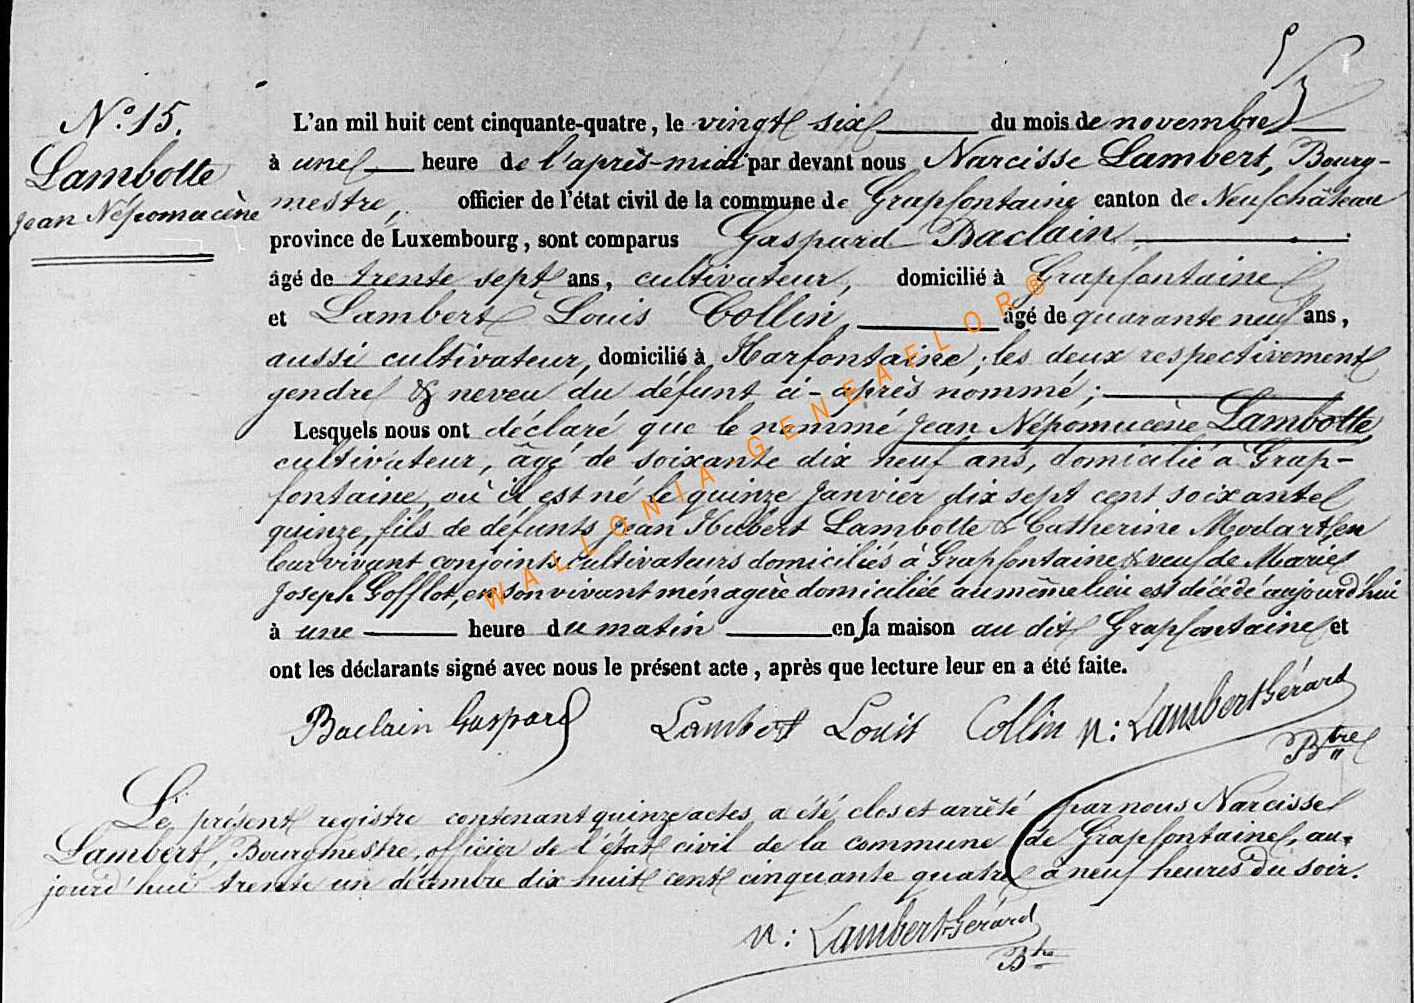 N.º 15.
Lambotte
Jean Népomucène
L'an mil huit cent cinquante-quatre, le vingt six du mois de novembre
à une heure de l'après-midi par devant nous Narcisse Lambert, Bourg-
mestre, officier de l'état civil de la commune de Grapfontaine canton de Neufchâteau
province de Luxembourg, sont comparus Gaspard Baclain
âgé de trente sept ans, cultivateur, domicilié à Grapfontaine
et Lambert Louis Collin, âgé de quarante neuf ans,
aussi cultivateur, domicilié à Harfontaine; les deux respectivement
gendre & neveu du défunt ci-après nommé;
Lesquels nous ont déclaré que le nommé Jean Népomucène Lambotte
cultivateur, âgé de soixante dix neuf ans, domicilié à Grap-
fontaine, où il est né le quinze Janvier dix sept cent soixante
quinze, fils de défunts Jean Hubert Lambotte & Catherine Modart, en
leur vivant conjoints cultivateurs domiciliés à Grapfontaine & veuf de Marie
Joseph Gofflot, en son vivant ménagère domiciliée au même lieu est décédé aujourd'hui
à une heure du matin en sa maison au dit Grapfontaine et
ont les déclarants signé avec nous le présent acte, après que lecture leur en a été faite.
Baclain Gaspard Lambert Louis Collin N: Lambert Gérard
Btre
Le présent registre contenant quinze actes, a été clos et arrêté par nous Narcisse
Lambert, Bourgmestre, officier de l'état civil de la commune de Grapfontaine, au-
jourd'hui trente un décembre dix huit cent cinquante quatre à neuf heures du soir.
N: Lambert Gérard
Btre
WALLONIA-GENEAFLOR®